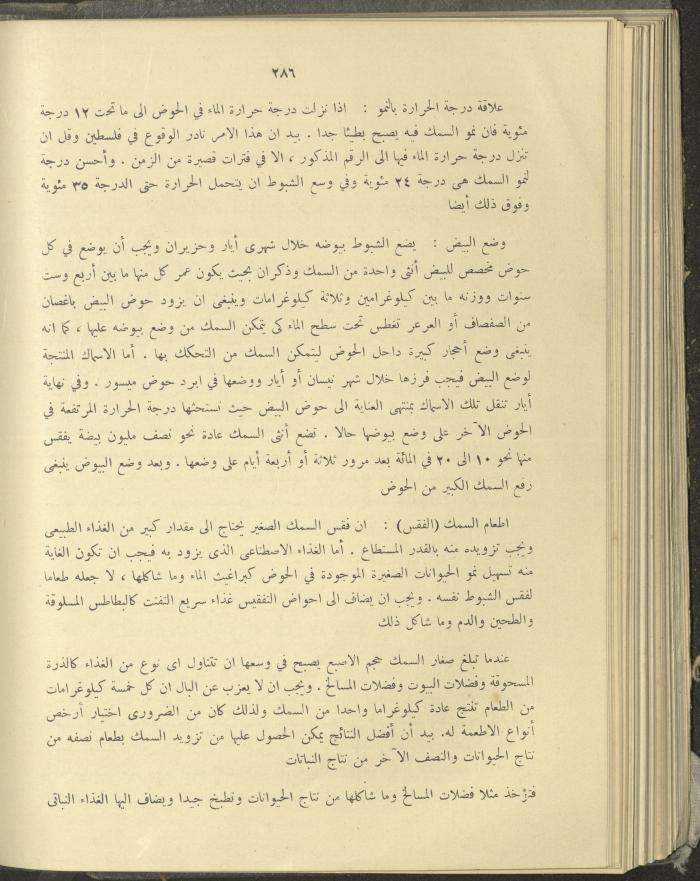 ٢٨٦
علاقة درجة الحرارة بالنمو : اذا نزلت درجة حرارة الماء في الحوض الى ما تحت ١٢ درجة
مئوية فان نمو السمك فيه يصبح بطيئا جدا . بيد ان هذا الامر نادر الوقوع في فلسطين وقل ان
تنزل درجة حرارة الماء فيها الى الرقم المذكور ، الا في فترات قصيرة من الزمن . وأحسن درجة
لنمو السمك هى درجة ٢٤ مئوية وفي وسع الشبوط ان يتحمل الحرارة حتى الدرجة ٣٥ مئوية
وفوق ذلك أيضا
وضع البيض : يضع الشبوط بيوضه خلال شهرى أيار وحزيران ويجب أن يوضع في كل
حوض مخصص للبيض أنثى واحدة من السمك وذكران بحيث يكون عمر كل منها ما بين أربع وست
سنوات ووزنه ما بين كيلوغرامين وثلاثة كيلوغرامات وينبغى ان يزود حوض البيض باغصان
من الصفصاف أو العرعر تغطس تحت سطح الماء كى يتمكن السمك من وضع بيوضه عليها ، كما انه
ينبغى وضع أحجار كبيرة داخل الحوض ليتمكن السمك من التحكك بها . أما الاسماك المنتجة
لوضع البيض فيجب فرزها خلال شهر نيسان أو أيار ووضعها في ابرد حوض ميسور . وفي نهاية
أيار تنقل تلك الاسماك بمنتهى العناية الى حوض البيض حيث تستحثها درجة الحرارة المرتفعة في
الحوض الآخر على وضع بيوضها حالا . تضع أنثى السمك عادة نحو نصف مليون بيضة يفقس
منها نحو ١٠ الى ٢٠ في المائة بعد مرور ثلاثة أو أربعة أيام على وضعها . وبعد وضع البيوض ينبغى
رفع السمك الكبير من الحوض
اطعام السمك (الفقس) : ان فقس السمك الصغير يحتاج الى مقدار كبير من الغذاء الطبيعى
ويجب تزويده منه بالقدر المستطاع . أما الغذاء الاصطناعى الذى يزود به فيجب ان تكون الغاية
منه تسهيل نمو الحيوانات الصغيرة الموجودة في الحوض كبراغيث الماء وما شاكلها ، لا جعله طعاما
لفقس الشبوط نفسه . ويجب ان يضاف الى احواض التفقيس غذاء سريع التفتت كالبطاطس المسلوقة
والطحين والدم وما شاكل ذلك
عندما تبلغ صغار السمك حجم الاصبع يصبح في وسعها ان تتناول اى نوع من الغذاء كالذرة
المسحوقة وفضلات البيوت وفضلات المسالخ . ويجب ان لا يعزب عن البال ان كل خمسة كيلوغرامات
من الطعام تنتج عادة كيلوغراما واحدا من السمك ولذلك كان من الضرورى اختيار أرخص
أنواع الاطعمة له. بيد أن أفضل النتائج يمكن الحصول عليها من تزويد السمك بطعام نصفه من
نتاج الحيوانات والنصف الآخر من نتاج النباتات
فتؤخذ مثلا فضلات المسالخ وما شاكلها من نتاج الحيوانات وتطبخ جيدا ويضاف اليها الغذاء النباتى